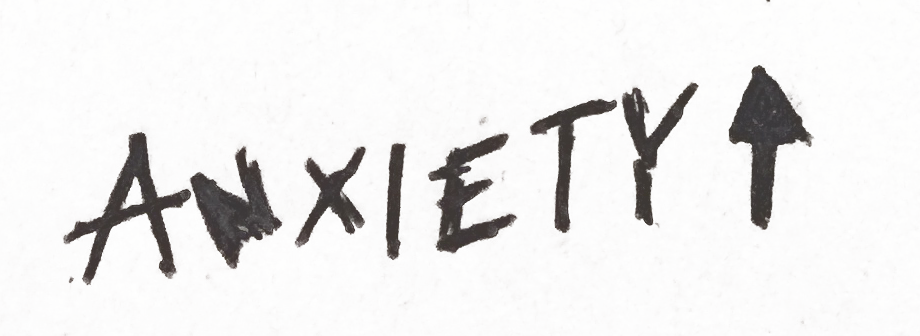 ANXIETY ↑